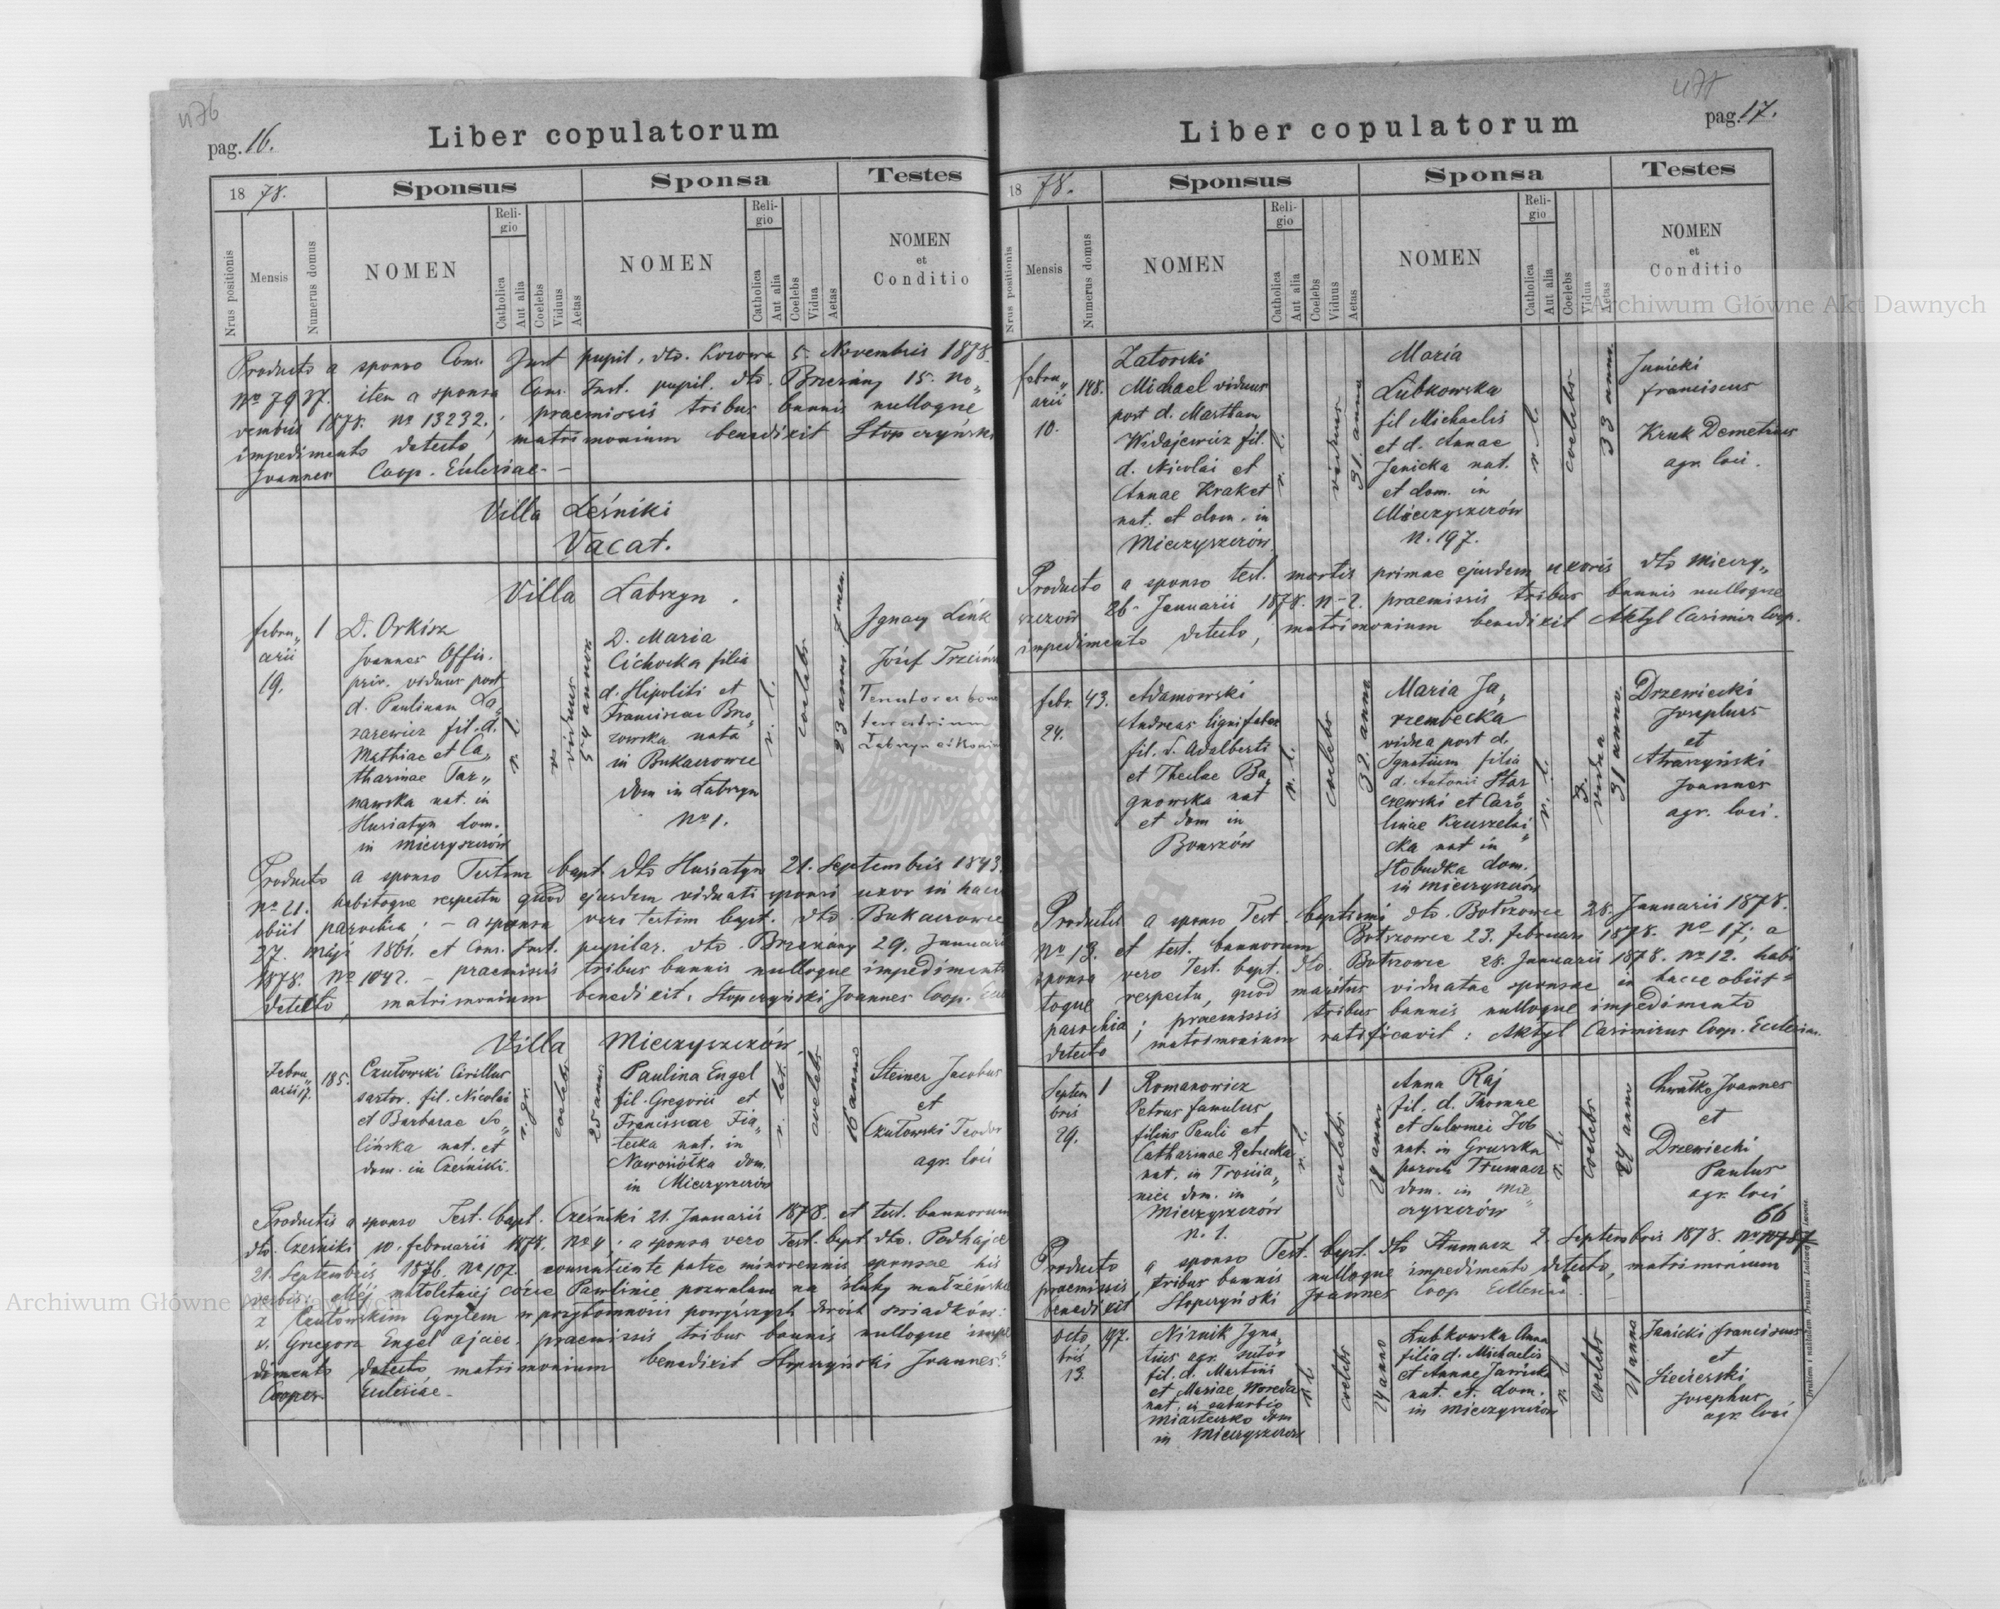 476
pag. 16.
Liber copulatorum
18 78.
Sponsus
Sponsa
Testes
Nrus positionis
Mensis
Numerus domus
NOMEN
Religio
Catholica
Aut alia
Coelebs
Viduus
Aetas
NOMEN
Religio
Catholica
Aut alia
Coelebs
Vidua
Aetas
NOMEN
et
Conditio
Producto a sponso Cons. Inst pupil. dto. Kozowa 5. Novembris 1878.
No 7937. item a sponsa Cons. Inst. pupil. dto. Brzeżany 15. no„
vembris 1878. No 13232.; praemissis tribus bannis nulloque
impedimento detecto, matrimonium benedixit Stopczyński
Joannes Coop. Ecclesiae.
Villa Leśniki
Vacat.
Villa Labszyn.
febru„
arii
19.
1
D. Orkisz
Joannes Offic.
priv. viduus post
d. Paulinam La„
zarewicz fil. d.
Mathiae et Ca„
tharinae Tar„
nawska nat. in
Husiatyn dom.
in Mieczyszczów
r. l.
viduus
54 annor
D. Maria
Cichocka filia
d. Hipoliti et
Franciscae Brzo„
zowska nata
in Bukaczowce
dom in Labszyn
No 1.
r. l.
coelebs
23 anni 7 men.
Ignacy Link
Józef
Tenutores bon
terrestrium
Labszyn et
Producto a sponso Testim bapt. dto Husiatyn 21. Septembris 1843.
No 21. habitoque respectu quod ejusdem viduati sponsi uxor in hacce
obiit parochia; - a sponsa vero testim bapt. dto. Bukaczowce
27. Maji 1861. et Cons. Inst. pupilar. dto. Brzeżany 29. Januarii
1878. No 1042. - praemissis tribus bannis nulloque impedimento
detecto, matrimonium benedixit. Stopczyński Joannes Coop.
Villa Mieczyszczów.
Febru„
arii 17.
185.
Czutowski Cirillus
sartor. fil. Nicolai
et Barbarae So„
lińska nat. et
dom. in Cześniki.
r. gr.
coelebs
25 ann.
Paulina Engel
fil. Gregorii et
Franciscae Fia„
tecka nat. in
Nowosiółka dom.
in Mieczyszczów
r. lat.
coelebs
16 ann
Steiner Jacobus
et
Czutowski Teodor
agr. loci
Productis a sponso Test. bapt. Cześniki 21. Januarii 1878. et test. bannorum
dto. Cześniki 10. februarii 1878. No 4; a sponsa vero Test. bapt dto. Podhajce
21. Septembris 1876. No 107. consentiente patre minorennis sponsae his
verbis: Mej małoletniej córce Paulinie pozwalam na śluby małżeńskie
z Czutowskim Cyrylem w przytomności powyższych dwóch świadków:
v. Gregorz Engel ojciec. praemissis tribus bannis nulloque impe
dimento detecto matrimonium benedixit Stopczyński Joannes
Cooper. Ecclesiae.
477
pag. 17.
Liber copulatorum
18 78.
Sponsus
Sponsa
Testes
Nrus positionis
Mensis
Numerus domus
NOMEN
Religio
Catholica
Aut alia
Coelebs
Viduus
Aetas
NOMEN
Religio
Catholica
Aut alia
Coelebs
Vidua
Aetas
NOMEN
et
Conditio
febru„
arii
10.
148.
Zatorski
Michael viduus
post d. Martham
Widajewicz fil.
d. Nicolai et
Annae Kraket
nat. et dom. in
Mieczyszczów
r. l.
viduus
31. anno
Maria
Lubkowska
fil Michaelis
et d. Annae
Janicka nat.
et dom. in
Mieczyszczów
N. 197.
r. l.
coelebs
33 ann.
Janicki
franciscus
Kruk Demetrius
agr. loci.
Producto a sponso test. mortis primae ejusdem uxoris dto Mieczy„
szczów 26. Januarii 1878. N-2. praemissis tribus bannis nulloque
impedimento detecto, matrimonium benedixit Aktyl Casimir Coop.
febr.
24.
43.
Adamowski
Andreas lignifaber
fil. d. Adalberti
et Theclae Ba„
gnowska nat
et dom in
Bouszów
r. l.
coelebs
32. anno
Maria Ja„
rzembecka
vidua post d.
Ignatium filia
d. Antonii Star
czewski et Caro
linae Kruszelni„
cka nat in
Słobudka dom.
in Mieczyszczów
r. l.
vidua
31 anno.
Drzewiecki
Josephus
et
Joannes
agr. loci.
Productis a sponso Test. baptismi dto. Bołszowce 28. Januarii 1878.
No 13. et test. bannorum Bołszowce 23. februarii 1878. No 17; a
sponsa vero Test. bapt. dto. Bołszowce 28. Januarii 1878. No 12. habi
toque respectu, quod maritus viduatae sponsae in hacce obiit
parochia; praemissis tribus bannis nulloque impedimento
detecto matrimonium ratificavit: Aktyl Casimirus Coop. Ecclesiae.
Septem
bris
29.
1
Romanowicz
Petrus famulus
filius Pauli et
Catharinae Rebecka
nat. in Trościa„
niec dom. in
Mieczyszczów
n. 1.
r. l.
coelebs
24 ann
Anna Raj
fil. d. Thomae
et Salomei Job
nat. in Gruszka
paroch Tłumacz
dom. in Mie„
czyszczów
r. l.
coelebs
24 ann
Chwałko Joannes
et
Drzewiecki
Paulus
agr. loci
66
Producto a sponso Test. bapt. dto Tłumacz 2. Septembris 1878.
praemissis tribus bannis nulloque impedimento detecto, matrimonium
benedixit, Stopczyński Joannes Coop Ecclesiae.
Octo
bris
13.
197.
Nirnik Igna„
tius agr. sutor
fil. d. Martini
et Mariae Woreda
nat. in suburbio
Miasteczko dom
in Mieczyszczów
r. l.
coelebs
24 anno
Lubkowska Anna
filia d. Michaelis
et Annae Janicka
nat. et dom.
in Mieczyszczów
r. l.
coelebs
21 anno
Janicki franciscus
et
Sieciński
Josephus
agr. loci
Archiwum Główne Akt Dawnych
Archiwum Główne Akt Dawnych